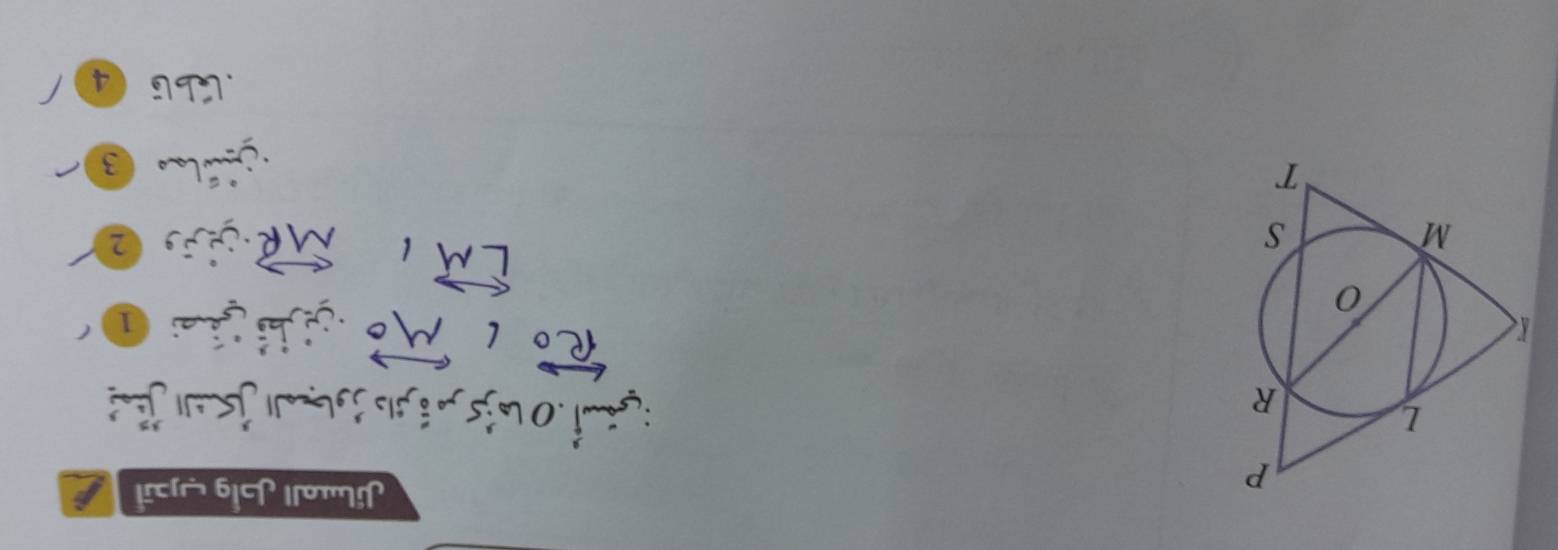 أتدرب وأحل المسائل
يُمثِّلُ الشكلُ المجاورُ دائرةً مركزُها O. أُسمّي:
1 نصفَيْ قُطْرَيْنِ. MO , RO
2 وترَيْنِ. MR , LM
3 مماسَّيْنِ.
4 قاطعًا.
P
L
R
O
K
M
S
T